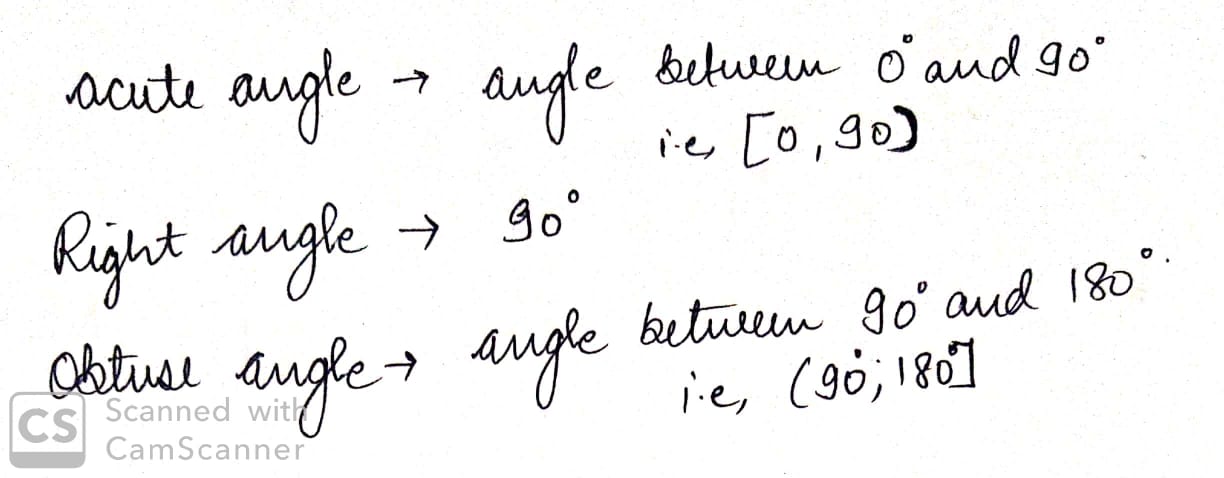 acute angle → angle between 0° and 90°
i.e, [0, 90)
Right angle → 90°
Obtuse angle → angle between 90° and 180°.
i.e, (90°, 180°]
CS Scanned with
CamScanner